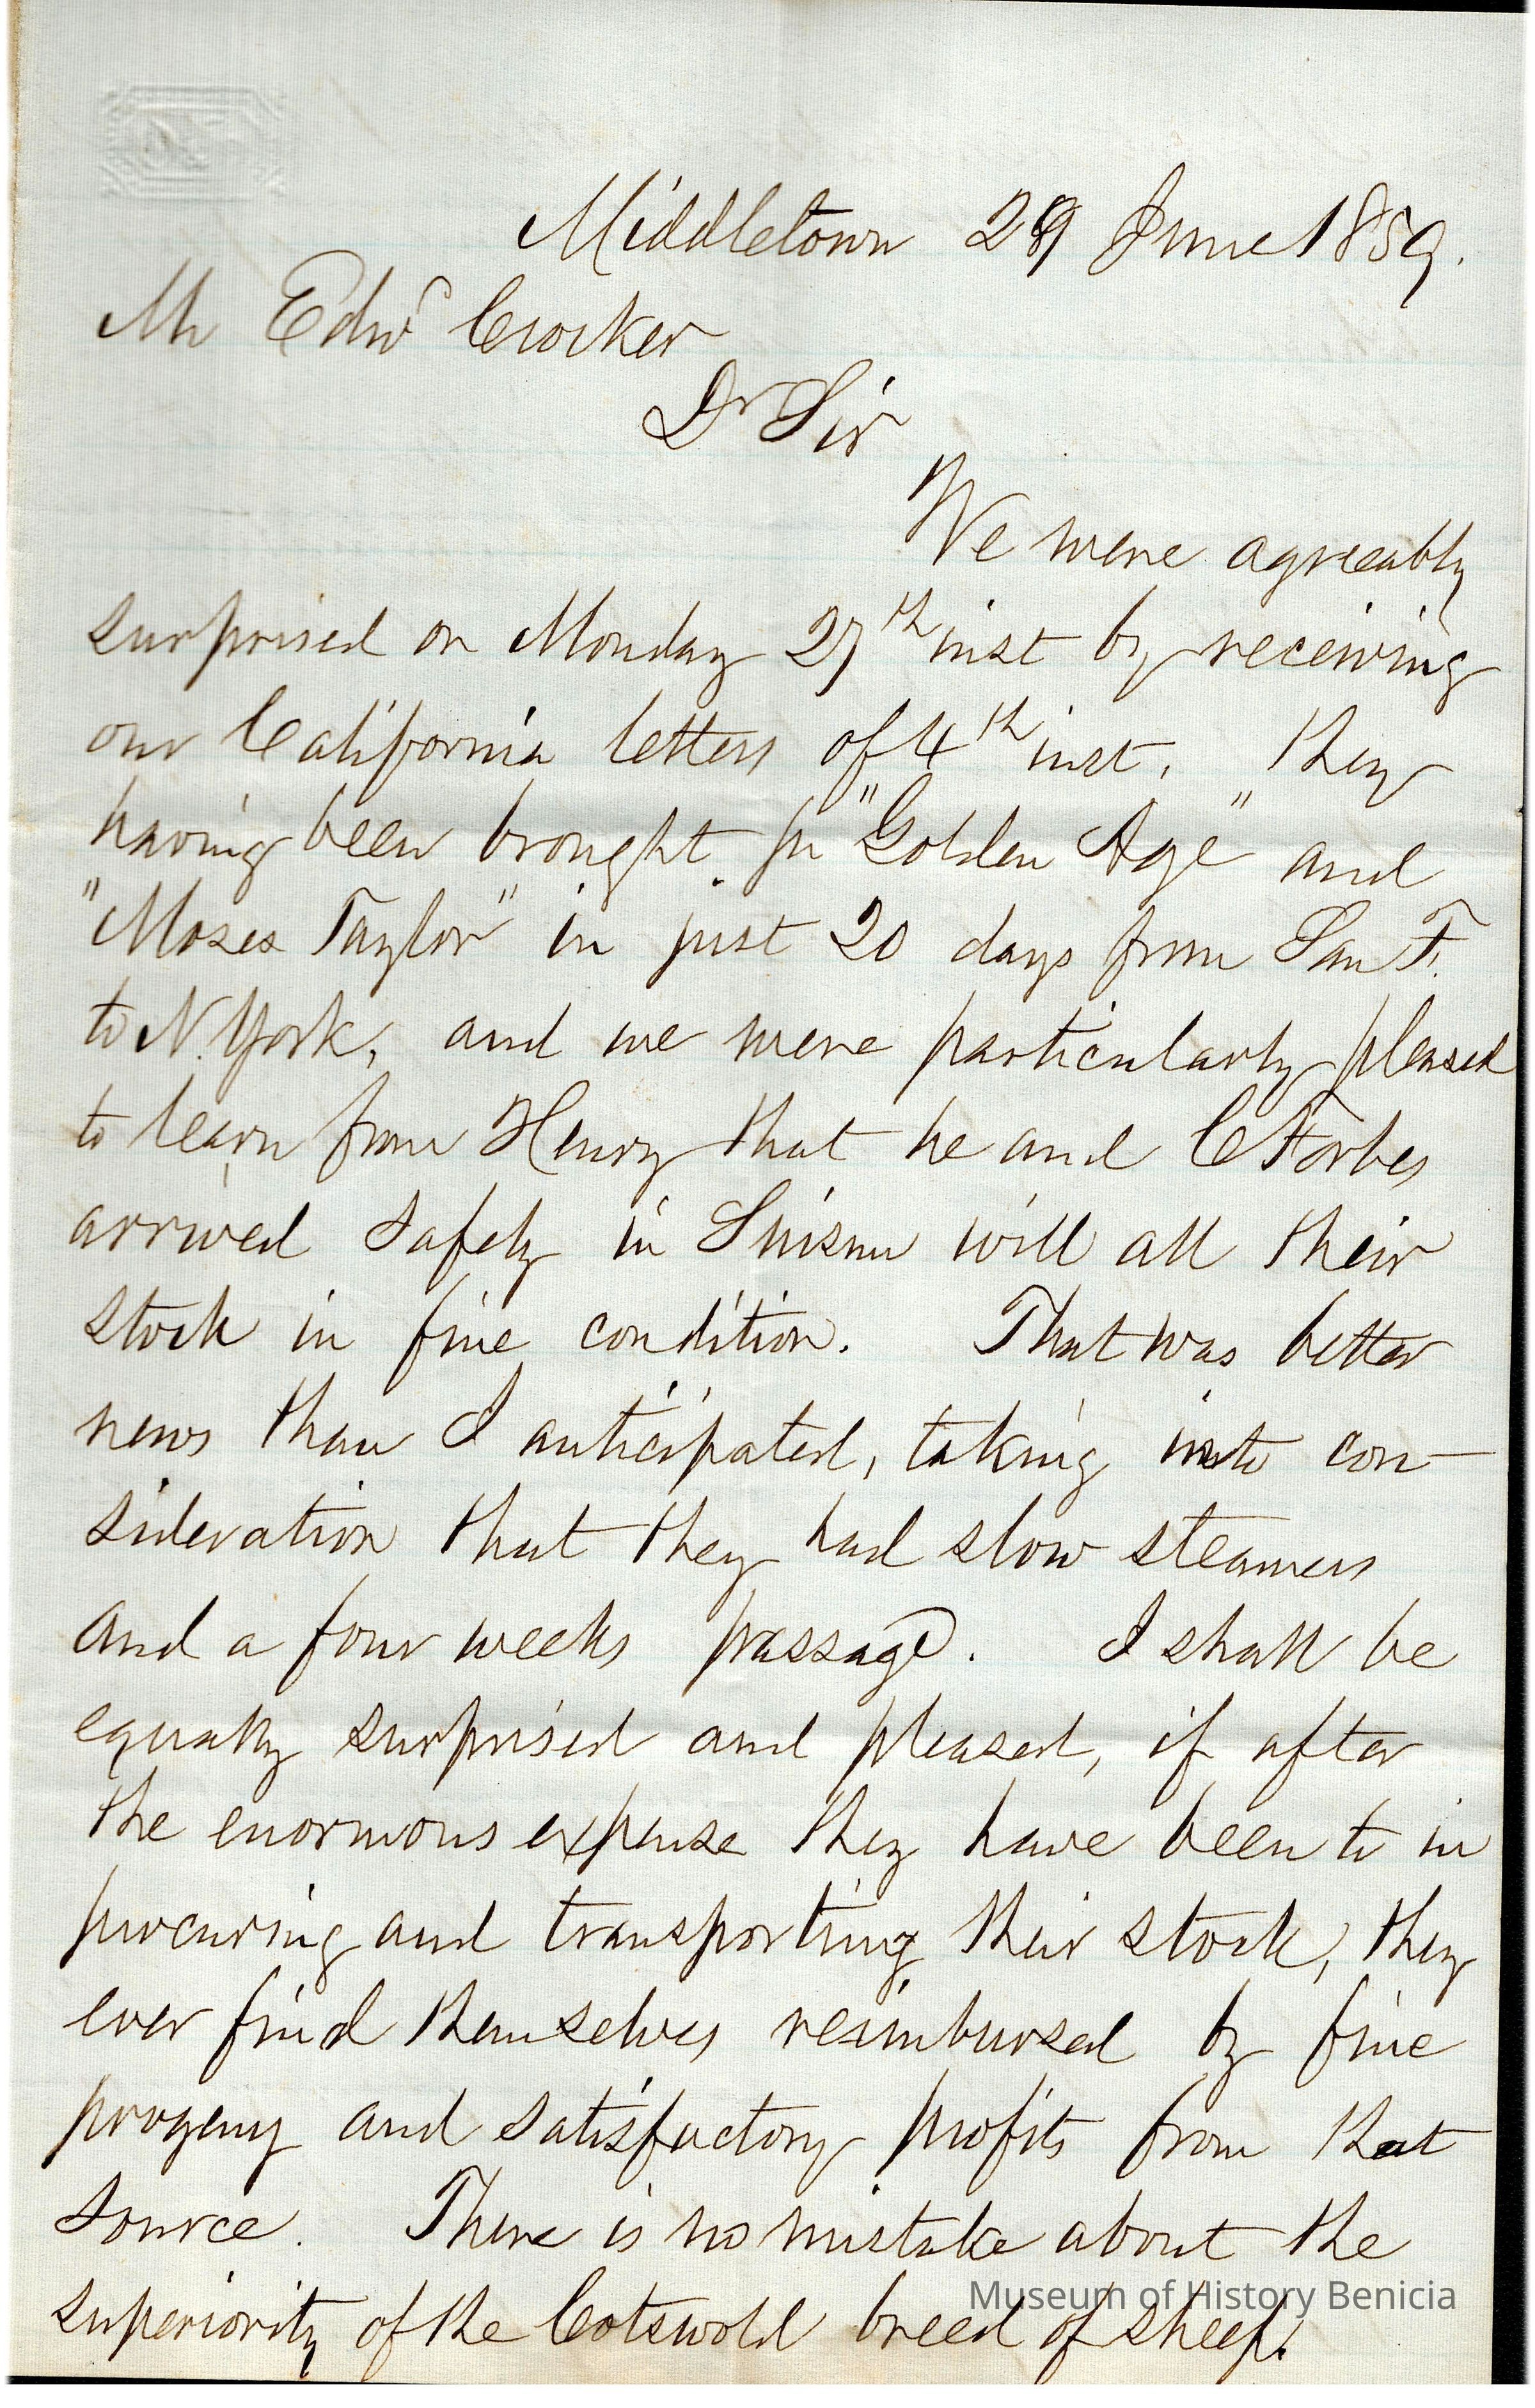 Middletown 29 June 1859.
Mr Edwd Crocker
Dr Sir
We were agreeably
surprised on Monday 27th inst by receiving
our California letters of 4th inst. They
having been brought pr "Golden Age" and
"Moses Taylor" in just 20 days from San F.
to N. York, and we were particularly pleased
to learn from Henry that he and C Forbes
arrived safely in Suisun with all their
stock in fine condition. That was better
news than I anticipated, taking into con-
sideration that they had slow steamers
and a four weeks passage. I shall be
equally surprised and pleased, if after
the enormous expense they have been to in
procuring and transporting their stock, they
ever find themselves reimbursed by fine
progeny and satisfactory profits from that
source. There is no mistake about the
superiority of the Cotswold breed of sheep.
Museum of History Benicia